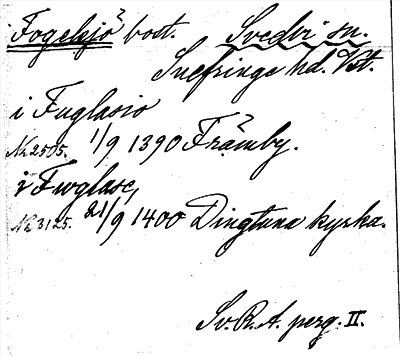 Fogelsjö? bost. Svedvi sn.
Snefringe hd. Vst.
i Fuglasio
No 2505. 1/9 1390 Främby.
i Fwglasc,
No 3125. 21/9 1400 Dingtuna kyrka.
Sv. R. A. perg. II.